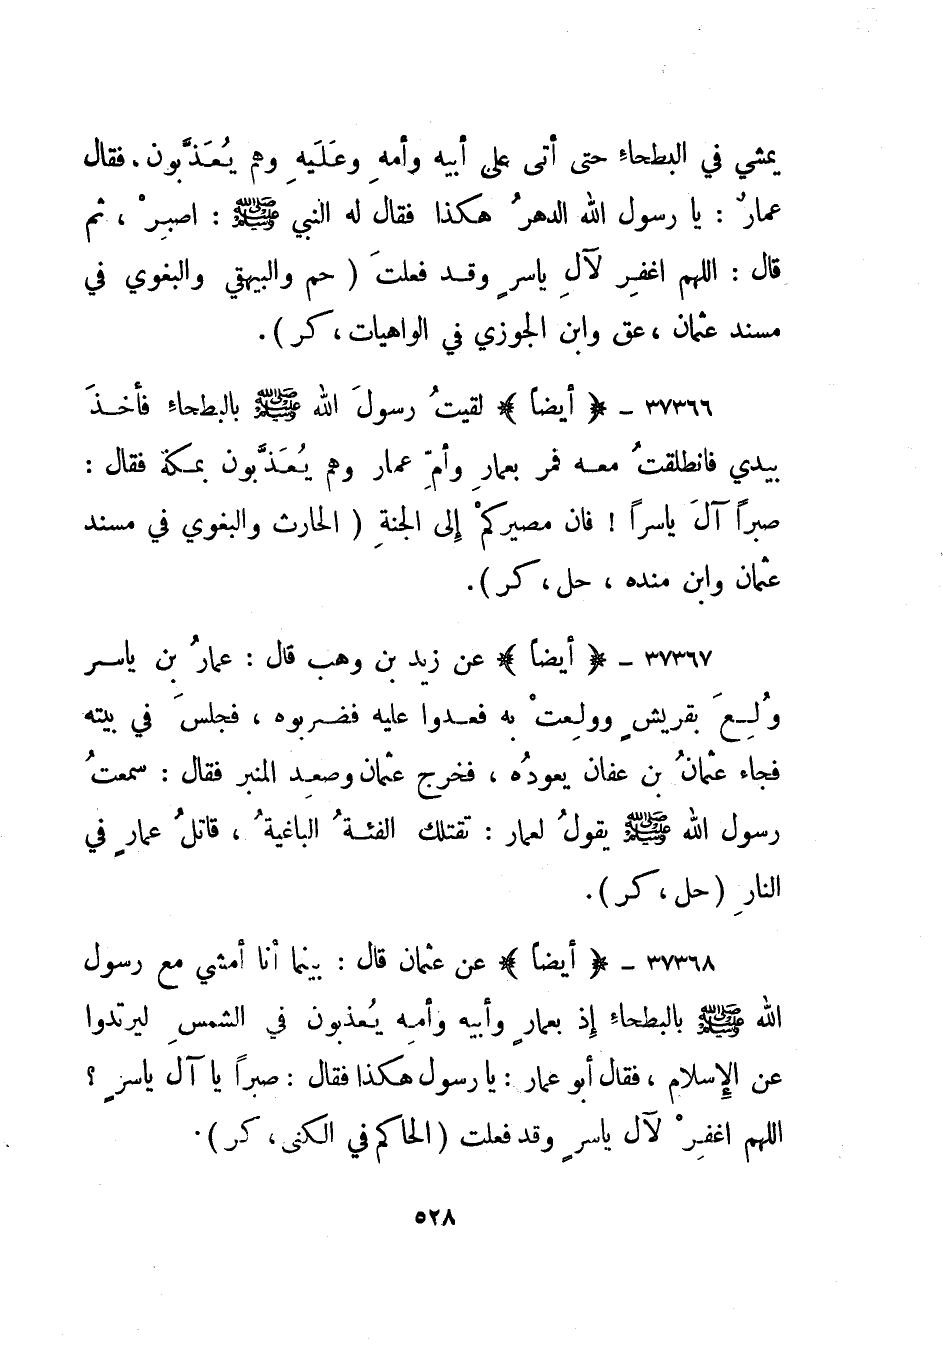 يمشي في البطحاءِ حتى أتى على أبيه وأمهِ وعَلَيهِ وهم يُعَذَّبون. فقال
عمارُ : يا رسول الله الدهرُ هكذا فقال له النبي ﷺ : اصبرْ ، ثم
قال : اللهم اغفِر لآلِ ياسرٍ وقد فعلتَ ( حم والبيهقي والبغوي في
مسند عثمان ، عق وابن الجوزي في الواهيات ، كر ).
٣٧٣٦٦ ـ ﴿ أيضاً ﴾ لقيتُ رسولَ الله ﷺ بالبطحاءِ فأخذَ
بيدي فانطلقتُ معه فمر بعمارِ وأمِّ عمار وهم يُعَذَّبون بمكة فقال :
صبراً آلَ ياسراً ! فان مصيركمْ إلى الجنةِ ( الحارث والبغوي في مسند
عثمان وابن منده ، حل ، كر ).
٣٧٣٦٧ ـ ﴿ أيضاً ﴾ عن زيد بن وهب قال : عمارُ بن ياسر
وُلِعَ بقريشٍ وولِعتْ به فعدوا عليه فضربوه ، فجلسَ في بيته
فجاء عثمانُ بن عفان يعودُه ، فخرج عثمان وصعِد المنبر فقال : سمعتُ
رسول الله ﷺ يقولُ لعمار : تقتلك الفئةُ الباغيةُ ، قاتلُ عمارٍ في
النارِ (حل ، كر ).
٣٧٣٦٨ ـ ﴿ أيضاً ﴾ عن عثمان قال : بينما أنا أمشي مع رسول
الله ﷺ بالبطحاءِ إذ بعمارٍ وأبيه وأمِه يُعذبون في الشمسِ ليرتدوا
عن الإِسلام ، فقال أبو عمار : يا رسول هكذا فقال : صبراً يا آل ياسرٍ ؟
اللهم اغفِرْ لآل ياسرٍ وقد فعلت ( الحاكم في الكنى ، كر ).
٥٢٨